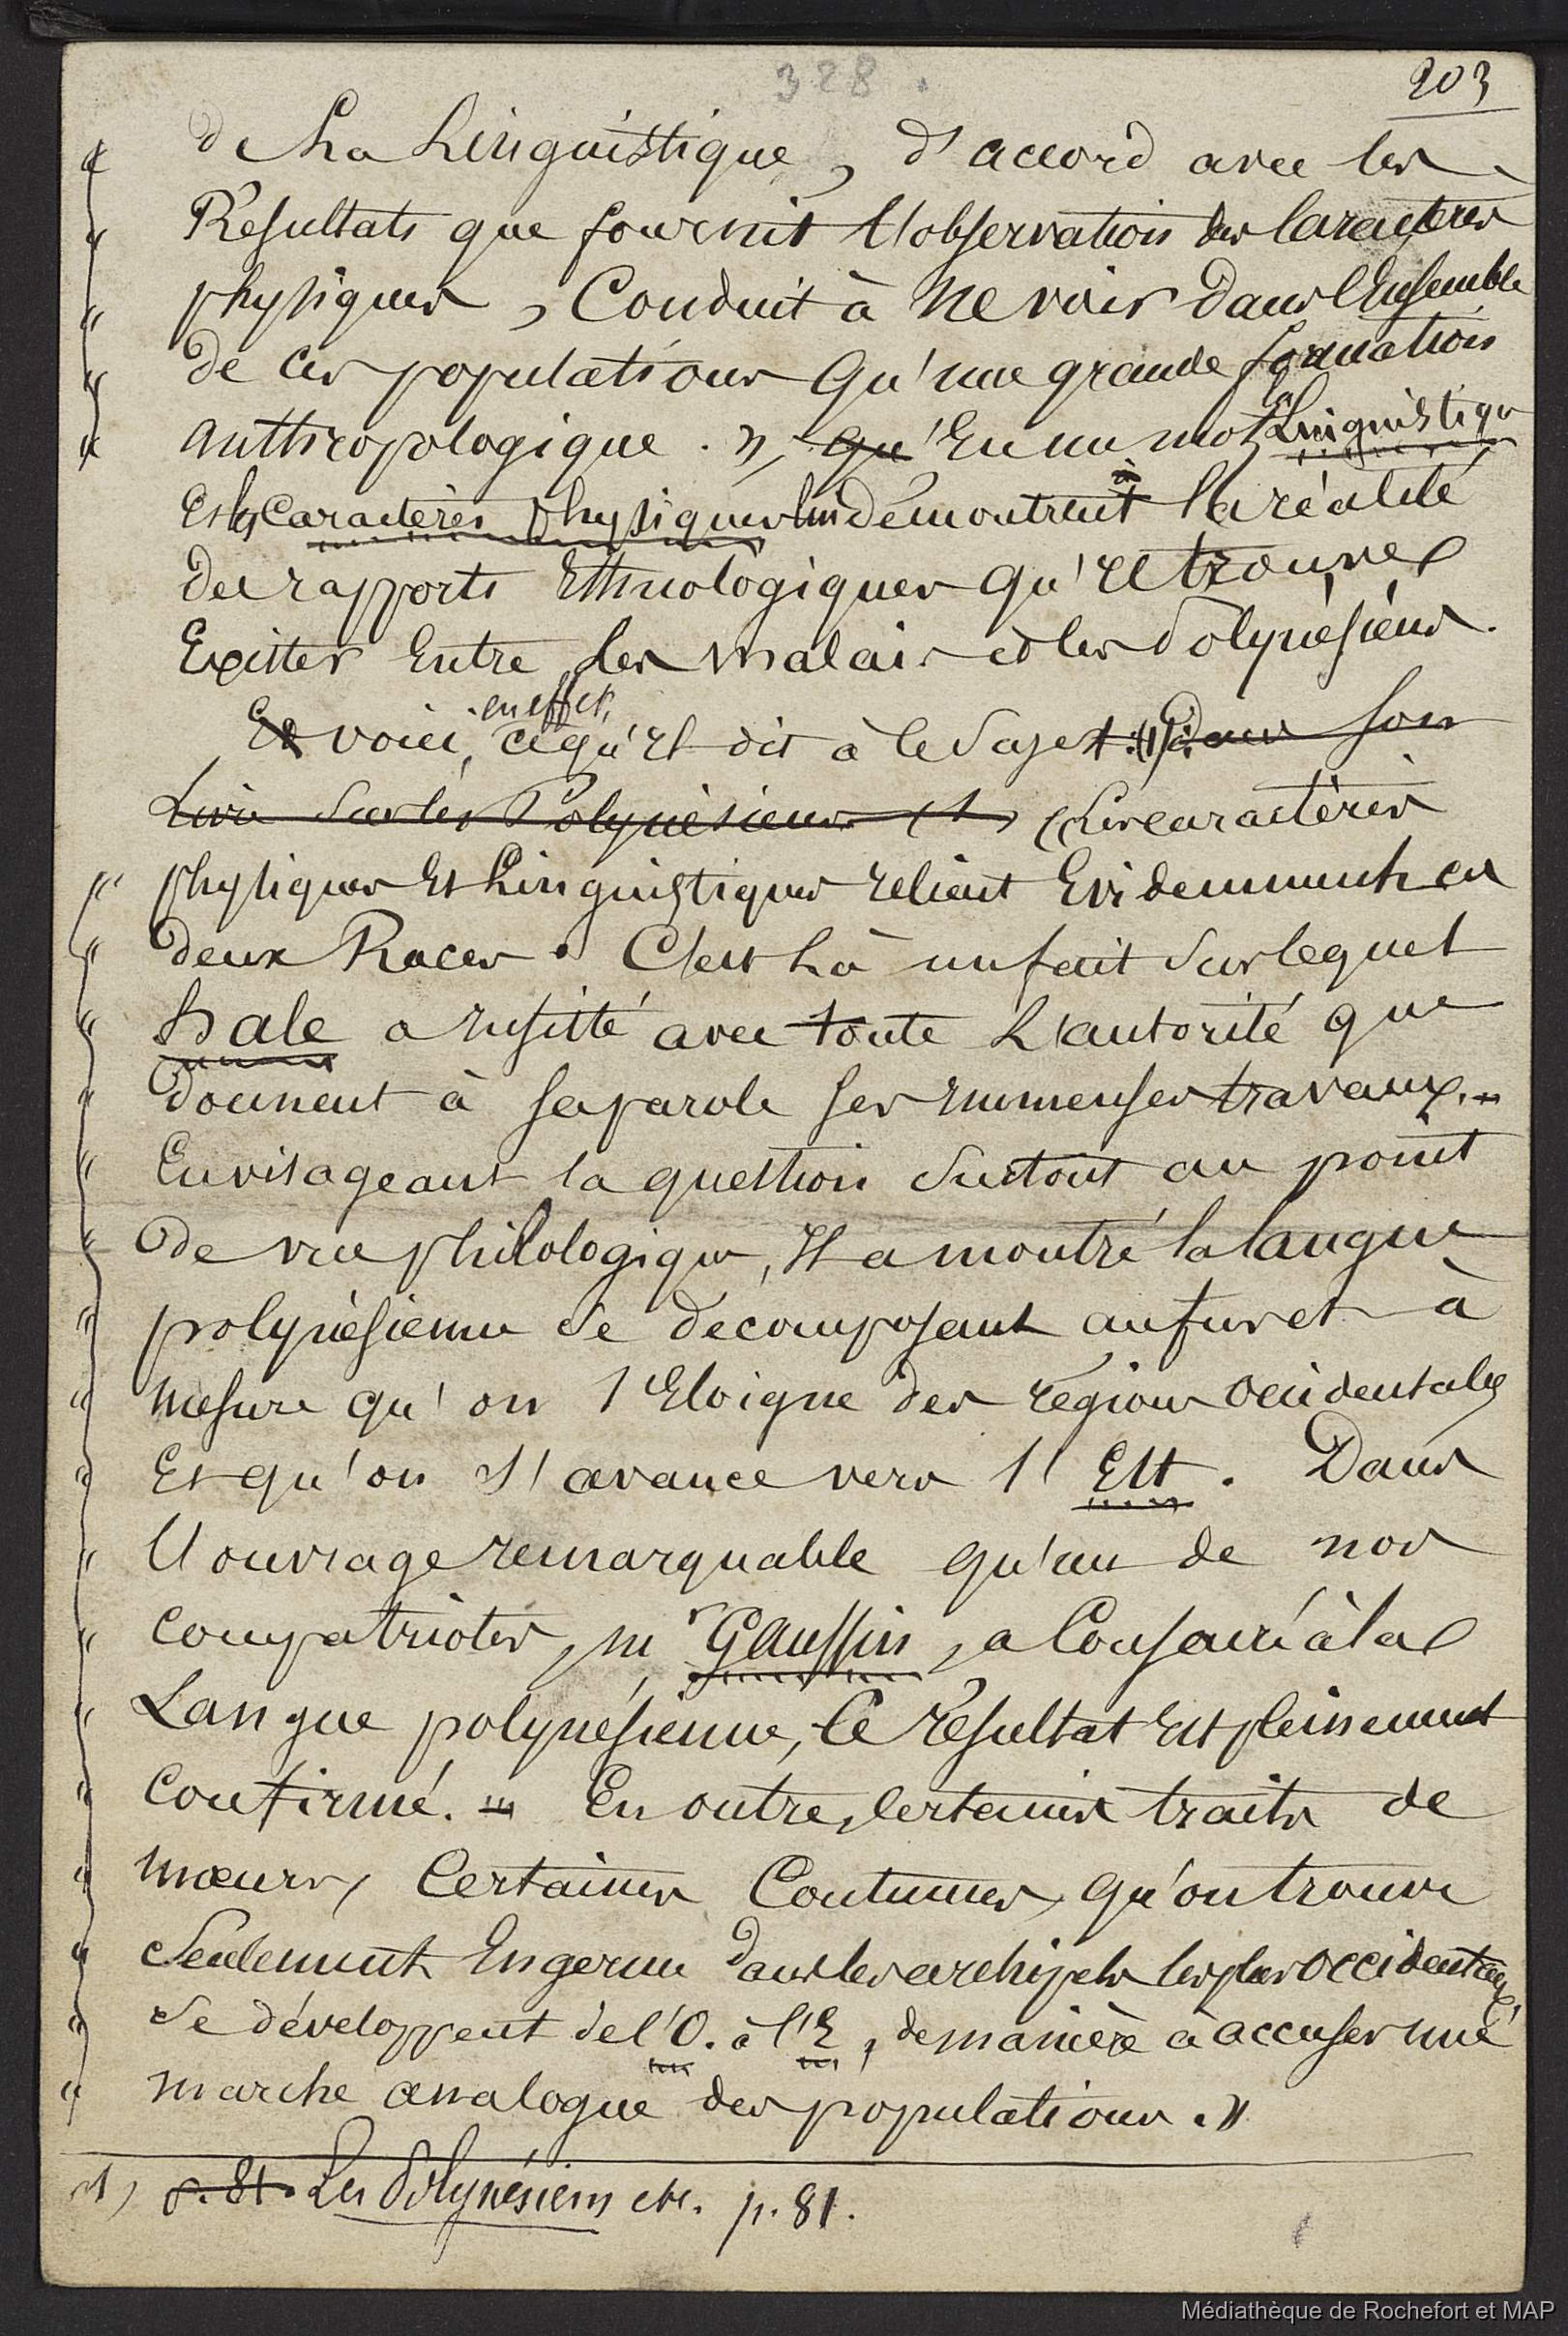 328.
203
de La Linguistique, d'accord avec les
Résultats que fournit l'observation des Caractères
physiques, Conduit à ne voir dans l'Ensemble
de ces populations qu'une grande formation
anthropologique. », qu'En un mot la Linguistique
Et les Caractères physiques lui démontrent à la réalité
des rapports Ethnologiques qu'il trouve
Exister Entre les Malais et les Polynésiens.
Et voici, en effet, ce qu'il dit à ce sujet : (1) dans son
Livre sur les Polynésiens (1) « Les caractères
physiques Et Linguistiques relient Evidemment ces
deux Races. C'est Là un fait sur lequel
Hale a insisté avec toute L'autorité que
donnent à sa parole ses immenses travaux. —
Envisageant la question surtout au point
de vue philologique, Il a montré la langue
polynésienne se décomposant au fur et à
mesure qu'on s'Eloigne des régions occidentales
Et qu'on s'avance vers l'Est. Dans
l'ouvrage remarquable qu'un de nos
compatriotes, Mr Gaussin, a Consacré à la
Langue polynésienne, Ce résultat Est pleinement
Confirmé. — En outre, Certains traits de
mœurs, Certaines Coutumes, qu'on trouve
seulement En germe dans les archipels les plus occidentaux,
se développent de l'O. à l'E, de manière à accuser une
marche analogue des populations. »
(1) p. 81. Les Polynésiens etc. p. 81.
Médiathèque de Rochefort et MAP